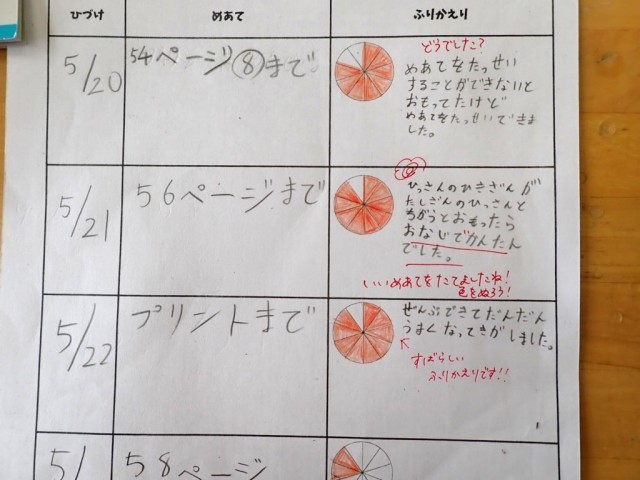 ひづけ
めあて
ふりかえり
5/20
54ページ⑧まで
どうでしたこ?
めあてをたっせい
することができないと
おもってたけど
めあてをたっせいできま
した。
5/21
56ページまで
ひっさんのひきざんが
たしざんのひっさんと
ちがうとおもったら
おなじでかんたん
でした。
いいめあてをたてましたね!
色をぬろう!
5/22
プリントまで
ぜんぶできてだんだん
うまくなってきがしました。
すばらしい
ふりかえりです!!
5/
58ページ